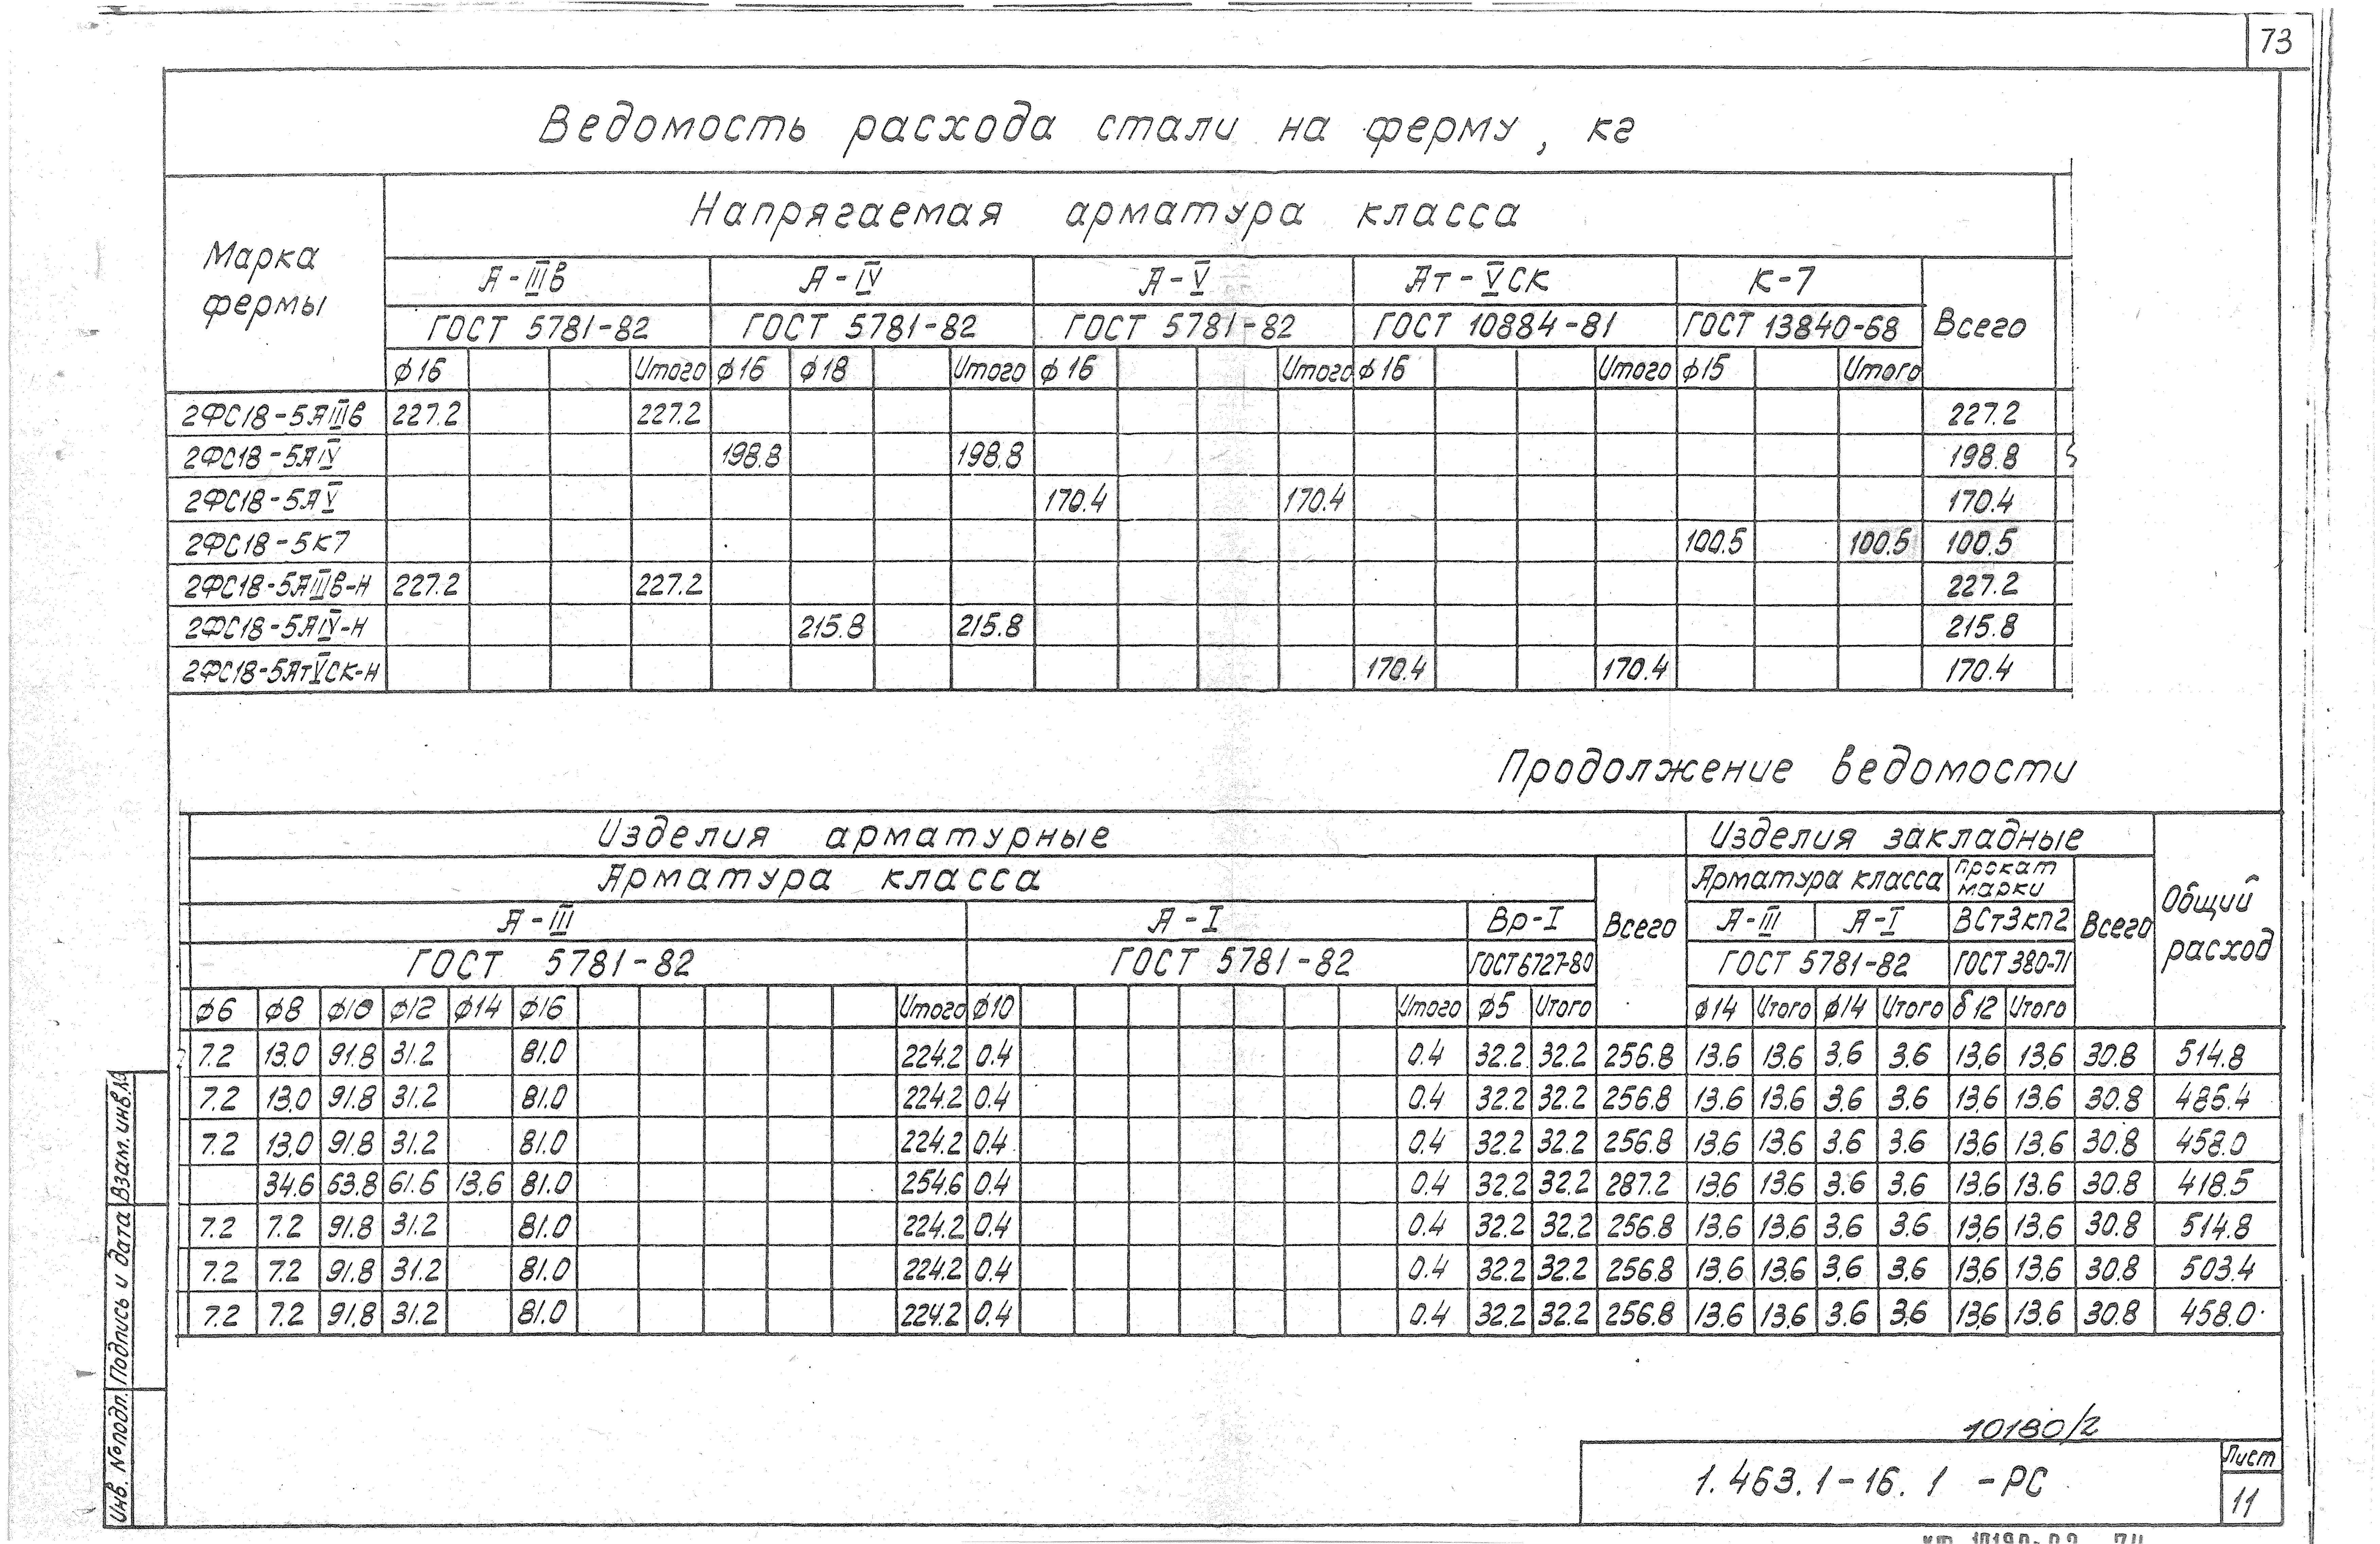 73
Ведомость расхода стали на ферму, кг
Марка фермы
Напрягаемая арматура класса
А-IIIв А-IV А-V Ат-VСК К-7 Всего
ГОСТ 5781-82 ГОСТ 5781-82 ГОСТ 5781-82 ГОСТ 10884-81 ГОСТ 13840-68
ф16 Итого ф16 ф18 Итого ф16 Итого ф16 Итого ф15 Итого
2ФС18-5АIIIв 227.2 227.2 227.2
2ФС18-5АIV 198.8 198.8 198.8
2ФС18-5АV 170.4 170.4 170.4
2ФС18-5К7 100.5 100.5 100.5
2ФС18-5АIIIв-Н 227.2 227.2 227.2
2ФС18-5АIV-Н 215.8 215.8 215.8
2ФС18-5АтVСК-Н 170.4 170.4 170.4
Продолжение ведомости
Изделия арматурные Изделия закладные Общий расход
Арматура класса Всего Арматура класса Прокат марки Всего
А-III А-I Вр-I А-III А-I ВСт3кп2
ГОСТ 5781-82 ГОСТ 5781-82 ГОСТ 6727-80 ГОСТ 5781-82 ГОСТ 380-71
ф6 ф8 ф10 ф12 ф14 ф16 Итого ф10 Итого ф5 Итого ф14 Итого ф14 Итого δ12 Итого
7.2 13.0 91.8 31.2 81.0 224.2 0.4 0.4 32.2 32.2 256.8 13.6 13.6 3.6 3.6 13.6 13.6 30.8 514.8
7.2 13.0 91.8 31.2 81.0 224.2 0.4 0.4 32.2 32.2 256.8 13.6 13.6 3.6 3.6 13.6 13.6 30.8 486.4
7.2 13.0 91.8 31.2 81.0 224.2 0.4 0.4 32.2 32.2 256.8 13.6 13.6 3.6 3.6 13.6 13.6 30.8 458.0
34.6 63.8 61.6 13.6 81.0 254.6 0.4 0.4 32.2 32.2 287.2 13.6 13.6 3.6 3.6 13.6 13.6 30.8 418.5
7.2 7.2 91.8 31.2 81.0 224.2 0.4 0.4 32.2 32.2 256.8 13.6 13.6 3.6 3.6 13.6 13.6 30.8 514.8
7.2 7.2 91.8 31.2 81.0 224.2 0.4 0.4 32.2 32.2 256.8 13.6 13.6 3.6 3.6 13.6 13.6 30.8 503.4
7.2 7.2 91.8 31.2 81.0 224.2 0.4 0.4 32.2 32.2 256.8 13.6 13.6 3.6 3.6 13.6 13.6 30.8 458.0
Инв. № подл. Подпись и дата Взам. инв. №
10180/2
1.463.1-16.1 -РС
Лист
11